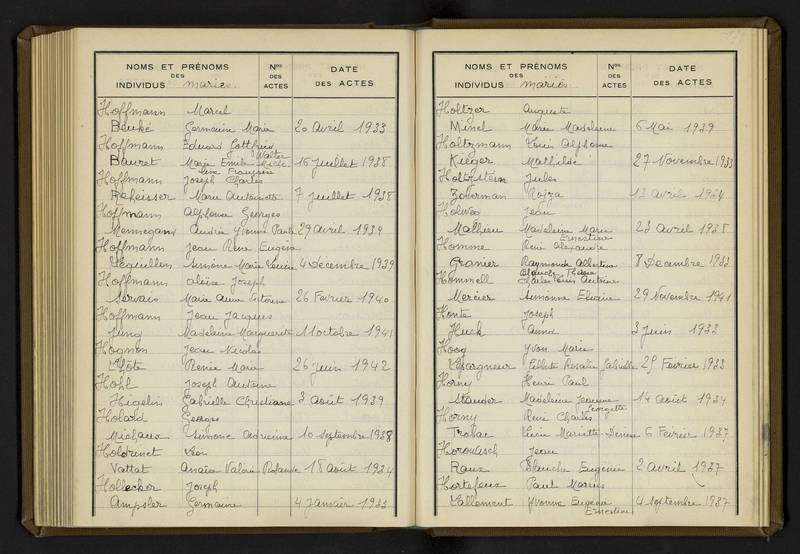 NOMS ET PRÉNOMS DES INDIVIDUS mariés
Nos DES ACTES
DATE DES ACTES
Hoffmann Marcel
Beuké Germaine Marie 20 Avril 1933
Hoffmann Eduard Gottfried Walter
Bauret Marie Emilie Françoise 16 Juillet 1938
Hoffmann Joseph Charles
Refeisser Marie Antoinette 7 Juillet 1938
Hoffmann Alphonse Georges
Mennegand Andrée Yvonne Paule 29 Avril 1939
Hoffmann Jean René Eugène
Leguillon Simone Marie Louise 4 Décembre 1939
Hoffmann Aloïse Joseph
Servais Marie Anne Victorine 26 Février 1940
Hoffmann Jean Jacques
Jung Madeleine Marguerite 11 octobre 1941
Hognon Jean Nicolas
L'Hôte Renée Marie 26 Juin 1942
Hohl Joseph Antoine
Higelin Gabrielle Christiane 3 Août 1939
Holard Georges
Michaux Simone Adrienne 10 septembre 1938
Holdrinet Léon
Vattat Anaïse Valérie Rolande 18 août 1934
Hollecker Joseph
Ampsler Germaine 4 Janvier 1933
NOMS ET PRÉNOMS DES INDIVIDUS mariés
Nos DES ACTES
DATE DES ACTES
Holtzer Auguste
Minel Marie Madeleine 6 Mai 1939
Holtzmann Louis Alphonse
Kieger Mathilde 27 Novembre 1933
Holtzstein Jules
Zoberman Rojza 12 Avril 1934
Holweg Jean
Mathieu Madeleine Marie Ernestine 23 Avril 1938
Homme René Alexandre
Granier Raymonde Albertine Blanche 8 Décembre 1933
Hommell Charles Louis Antoine
Mercier Simonne Eugénie 29 Novembre 1941
Honte Joseph
Huck Anna 3 Juin 1933
Hoog Yvon Marie
Lescargneur Rosalie Gabrielle 25 Février 1933
Horny Henri Paul
Stauder Madeleine Jeanne Georgette 14 août 1934
Horny René Charles
Trabac Lucie Mariette Denise 6 Février 1937
Horowisch Jean
Raux Blanche Eugénie 2 Avril 1937
Hortefeux Paul Marius
Lallement Yvonne Eugénie Ernestine 4 septembre 1937